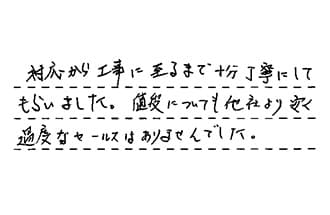 対応から工事に至るまで十分丁寧にして
もらいました。値段についても他社より安く
過度なセールスはありませんでした。